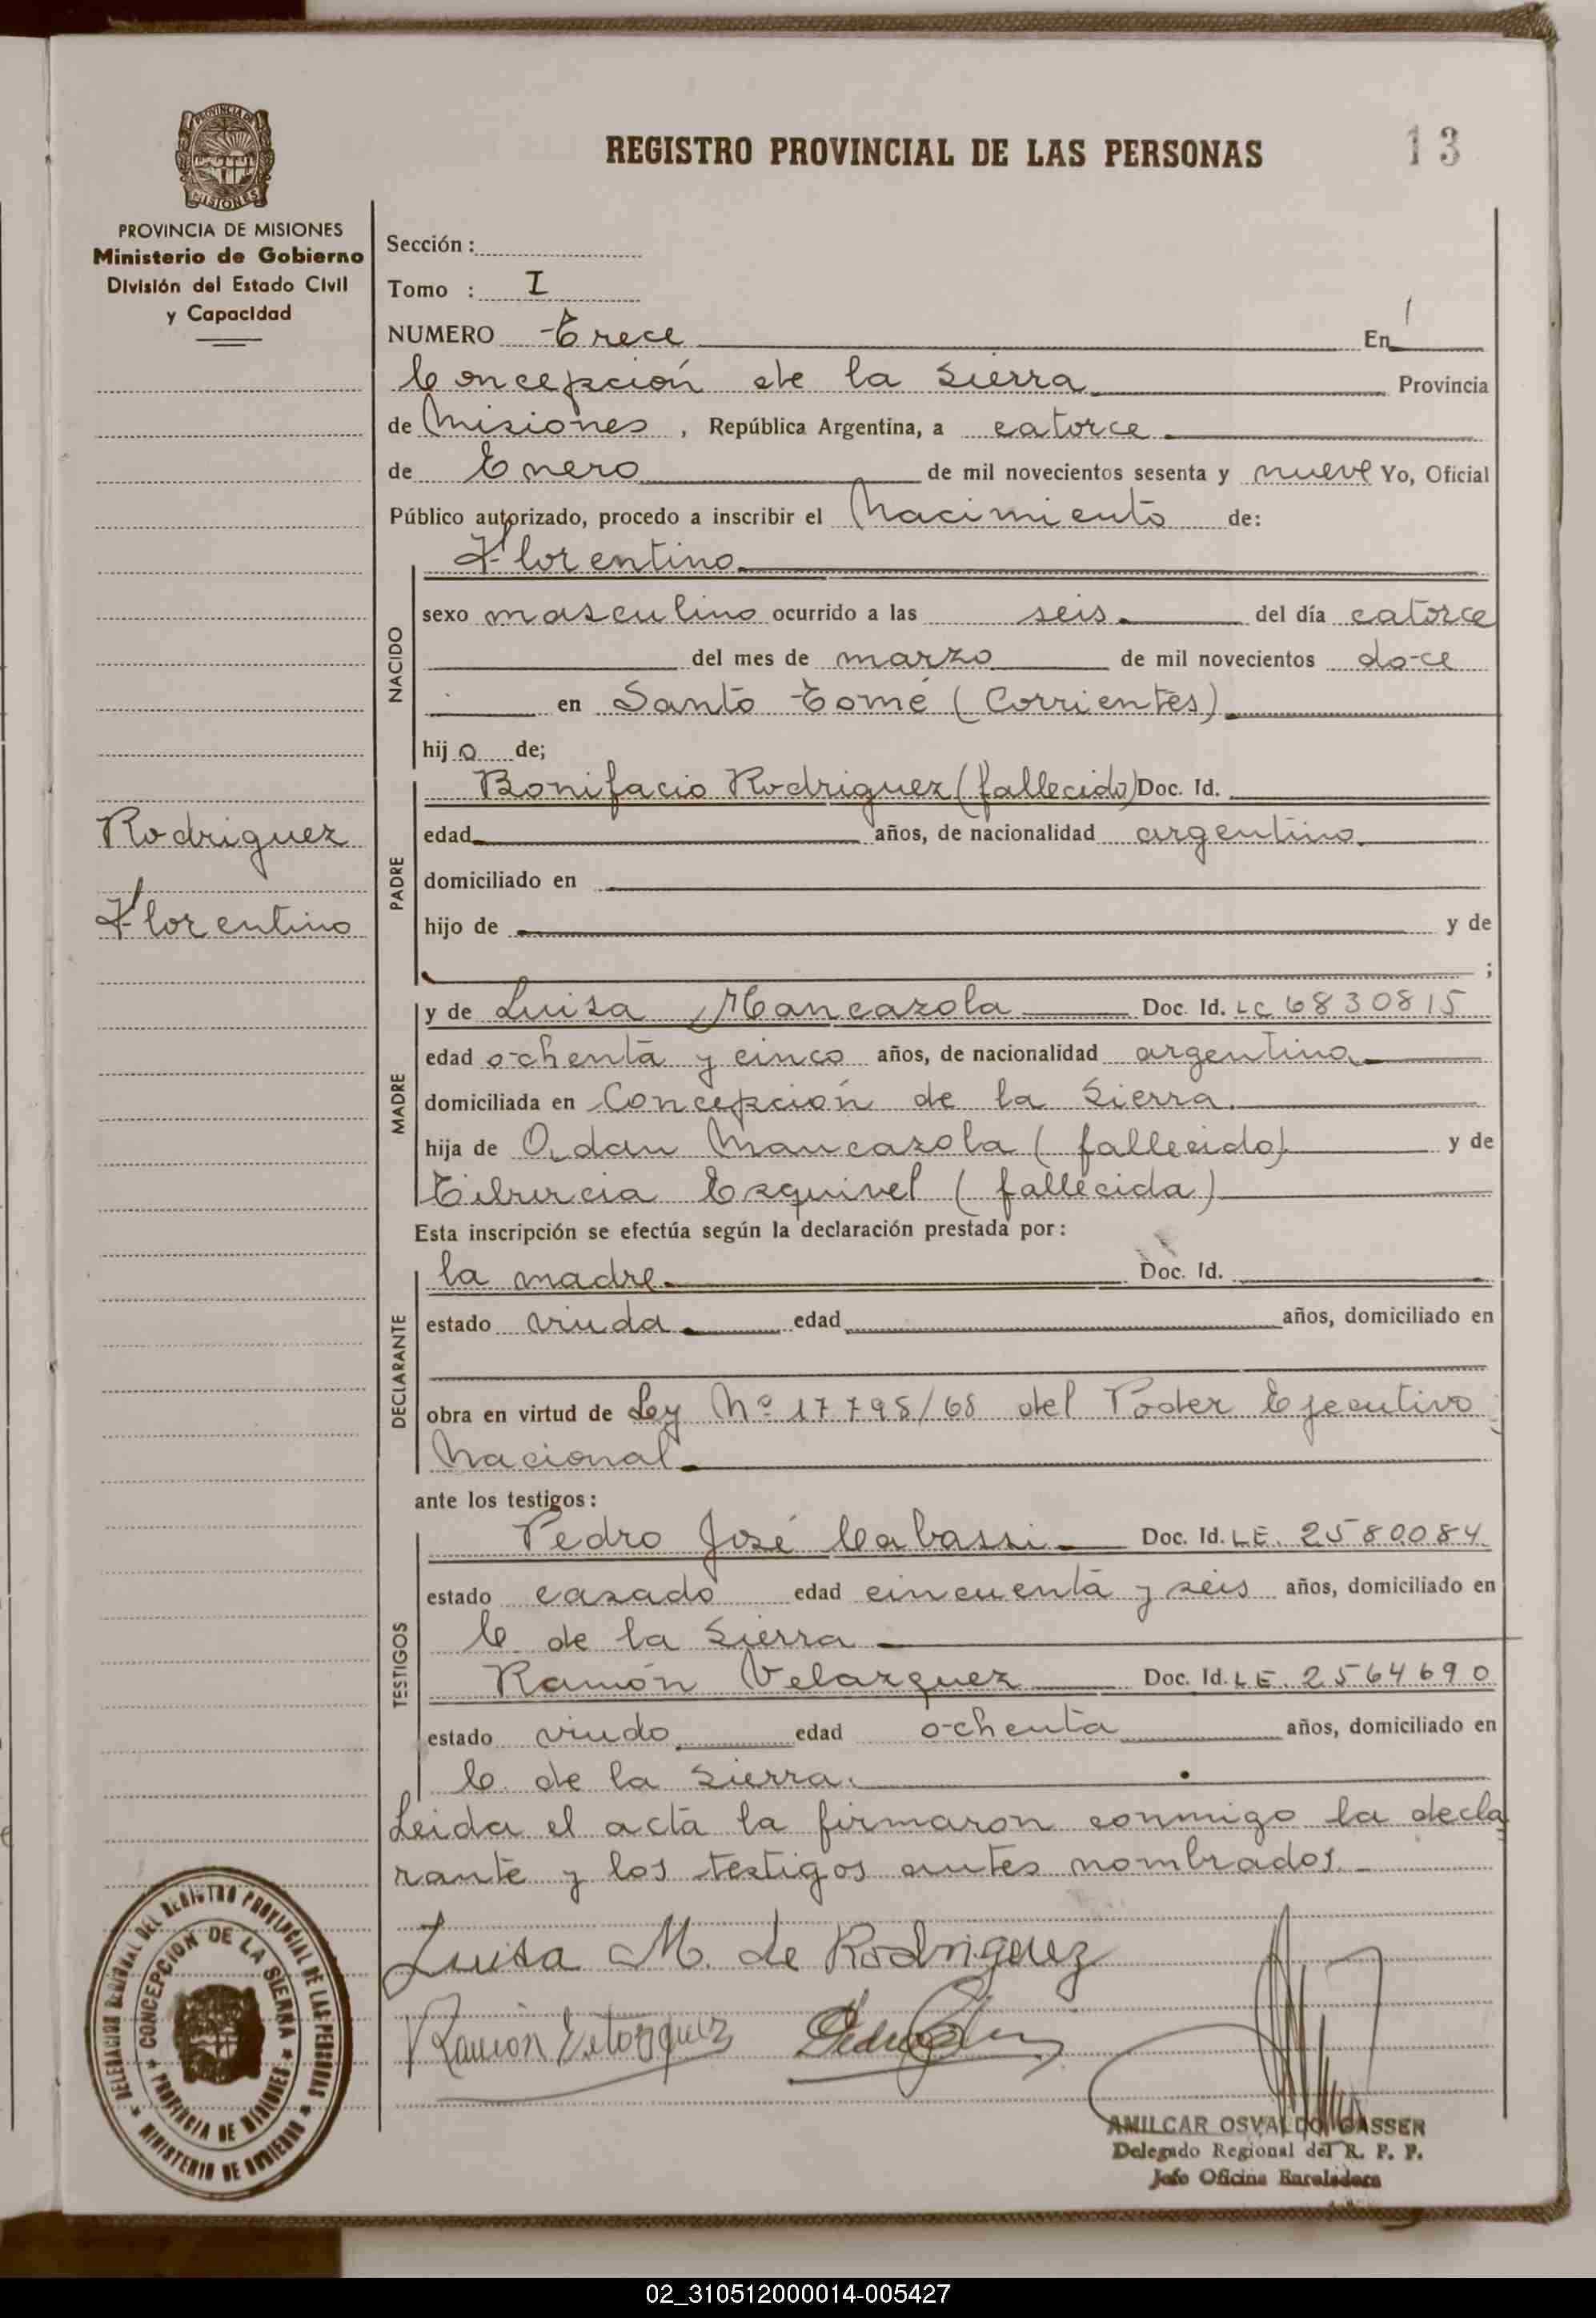 REGISTRO PROVINCIAL DE LAS PERSONAS
13
PROVINCIA DE
MISIONES
PROVINCIA DE MISIONES
Ministerio de Gobierno
División del Estado Civil
y Capacidad
Sección:
Tomo : I
NUMERO Trece En
Concepción de la Sierra Provincia
de Misiones, República Argentina, a catorce
de Enero de mil novecientos sesenta y nueve Yo, Oficial
Público autorizado, procedo a inscribir el Nacimiento de:
NACIDO
Florentino
sexo masculino ocurrido a las seis del día catorce
del mes de marzo de mil novecientos doce
en Santo Tomé (Corrientes)
hijo de;
PADRE
Bonifacio Rodriguez (fallecido) Doc. Id.
edad años, de nacionalidad argentino
domiciliado en
hijo de y de
;
Rodriguez
Florentino
MADRE
y de Luisa Mancazola Doc. Id. LC 6830815
edad ochenta y cinco años, de nacionalidad argentina
domiciliada en Concepción de la Sierra.
hija de Mancazola (fallecido) y de
Tiburcia Esquivel (fallecida)
Esta inscripción se efectúa según la declaración prestada por:
DECLARANTE
la madre Doc. Id.
estado viuda edad años, domiciliado en
obra en virtud de Ley Nº 17798/68 del Poder Ejecutivo
Nacional
ante los testigos:
TESTIGOS
Pedro José Cabassi Doc. Id. LE. 2580084
estado casado edad cincuenta y seis años, domiciliado en
C. de la Sierra
Ramón Velazquez Doc. Id. LE. 2564690
estado viudo edad ochenta años, domiciliado en
C. de la Sierra.
Leida el acta la firmaron conmigo la decla
rante y los testigos antes nombrados
Luisa M. de Rodriguez
Ramón Velazquez
DELEGACION REGIONAL DEL REGISTRO PROVINCIAL DE LAS PERSONAS
MINISTERIO DE GOBIERNO
CONCEPCION DE LA SIERRA
PROVINCIA DE MISIONES
AMILCAR OSVALDO GASSER
Delegado Regional del R. P. P.
Jefe Oficina
02_310512000014-005427